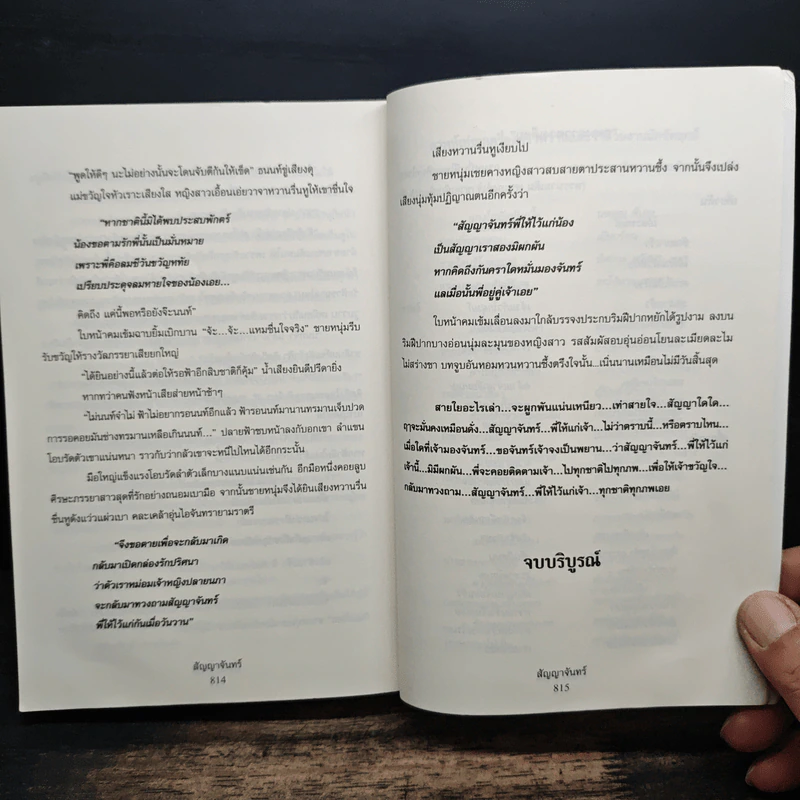 "พูดให้ดีๆ นะไม่อย่างนั้นจะโดนจับตีกันให้เข็ด" ธนนท์ขู่เสียงดุ
แม่ขวัญใจหัวเราะเสียงใส หญิงสาวเอื้อนเอ่ยวาจาหวานรื่นหูให้เขาชื่นใจ
"หากชาตินี้มิได้พบประสบพักตร์
น้องขอตามรักพี่นั้นเป็นมั่นหมาย
เพราะพี่คือลมชีวันขวัญหทัย
เปรียบประดุจลมหายใจของน้องเอย...
คิดถึง แค่นี้พอหรือยังจ๊ะนนท์"
ใบหน้าคมเข้มฉาบยิ้มเบิกบาน "จ้ะ...จ้ะ...แหมชื่นใจจริง" ชายหนุ่มรีบ
รับขวัญให้รางวัลภรรยาเสียยกใหญ่
"ได้ยินอย่างนี้แล้วต่อให้รอฟ้าอีกสิบชาติก็คุ้ม" น้ำเสียงยินดีปรีดายิ่ง
หากทว่าคนฟังหน้าเสียส่ายหน้าช้าๆ
"ไม่นนท์จำไม่ ฟ้าไม่อยากรอนนท์อีกแล้ว ฟ้ารอนนท์มานานทรมานเจ็บปวด
การรอคอยมันช่างทรมานเหลือเกินนนท์..." ปลายฟ้าซบหน้าลงกับอกเขา ลำแขน
โอบรัดตัวเขาแน่นหนา ราวกับว่ากลัวเขาจะหนีไปไหนได้อีกกระนั้น
มือใหญ่แข็งแรงโอบรัดลำตัวเล็กบางแนบแน่นเช่นกัน อีกมือหนึ่งคอยลูบ
ศีรษะภรรยาสาวสุดที่รักอย่างถนอมเบามือ จากนั้นชายหนุ่มจึงได้ยินเสียงหวานรื่น
ชื่นหูดังแว่วแผ่วเบา คละเคล้าอุ่นไอจันทรายามราตรี
"จึงขอตายเพื่อจะกลับมาเกิด
กลับมาเปิดกล่องรักปริศนา
ว่าตัวเราหม่อมเจ้าหญิงปลายนภา
จะกลับมาทวงถามสัญญาจันทร์
พี่ให้ไว้แก่กันเมื่อวันวาน"
สัญญาจันทร์
814
เสียงหวานรื่นหูเงียบไป
ชายหนุ่มเชยคางหญิงสาวสบสายตาประสานหวานซึ้ง จากนั้นจึงเปล่ง
เสียงนุ่มทุ้มปฏิญาณตนอีกครั้งว่า
"สัญญาจันทร์พี่ให้ไว้แก่น้อง
เป็นสัญญาเราสองมิผกผัน
หากคิดถึงกันคราใดหมั่นมองจันทร์
แลเมื่อนั้นพี่อยู่คู่เจ้าเอย"
ใบหน้าคมเข้มเลื่อนลงมาใกล้บรรจงประกบริมฝีปากหยักได้รูปงาม ลงบน
ริมฝีปากบางอ่อนนุ่มละมุนของหญิงสาว รสสัมผัสอบอุ่นอ่อนโยนละเมียดละไม
ไม่สร่างซา บทจูบอันหอมหวานซึ้งตรึงใจนั้น...เนิ่นนานเหมือนไม่มีวันสิ้นสุด
สายใยอะไรเล่า...จะผูกพันแน่นเหนียว...เท่าสายใจ...สัญญาใดใด...
ฤๅจะมั่นคงเหมือนดั่ง...สัญญาจันทร์...พี่ให้แก่เจ้า...ไม่ว่าดราบนี้...หรือตราบไหน...
เมื่อใดที่เจ้ามองจันทร์...ขอจันทร์เจ้าจงเป็นพยาน...ว่าสัญญาจันทร์...พี่ให้ไว้แก่
เจ้านี้...มิมีผกผัน...พี่จะคอยติดตามเจ้า...ไปทุกชาติไปทุกภพ...เพื่อให้เจ้าขวัญใจ...
กลับมาทวงถาม...สัญญาจันทร์...พี่ให้ไว้แก่เจ้า...ทุกชาติทุกภพเอย
จบบริบูรณ์
สัญญาจันทร์
815